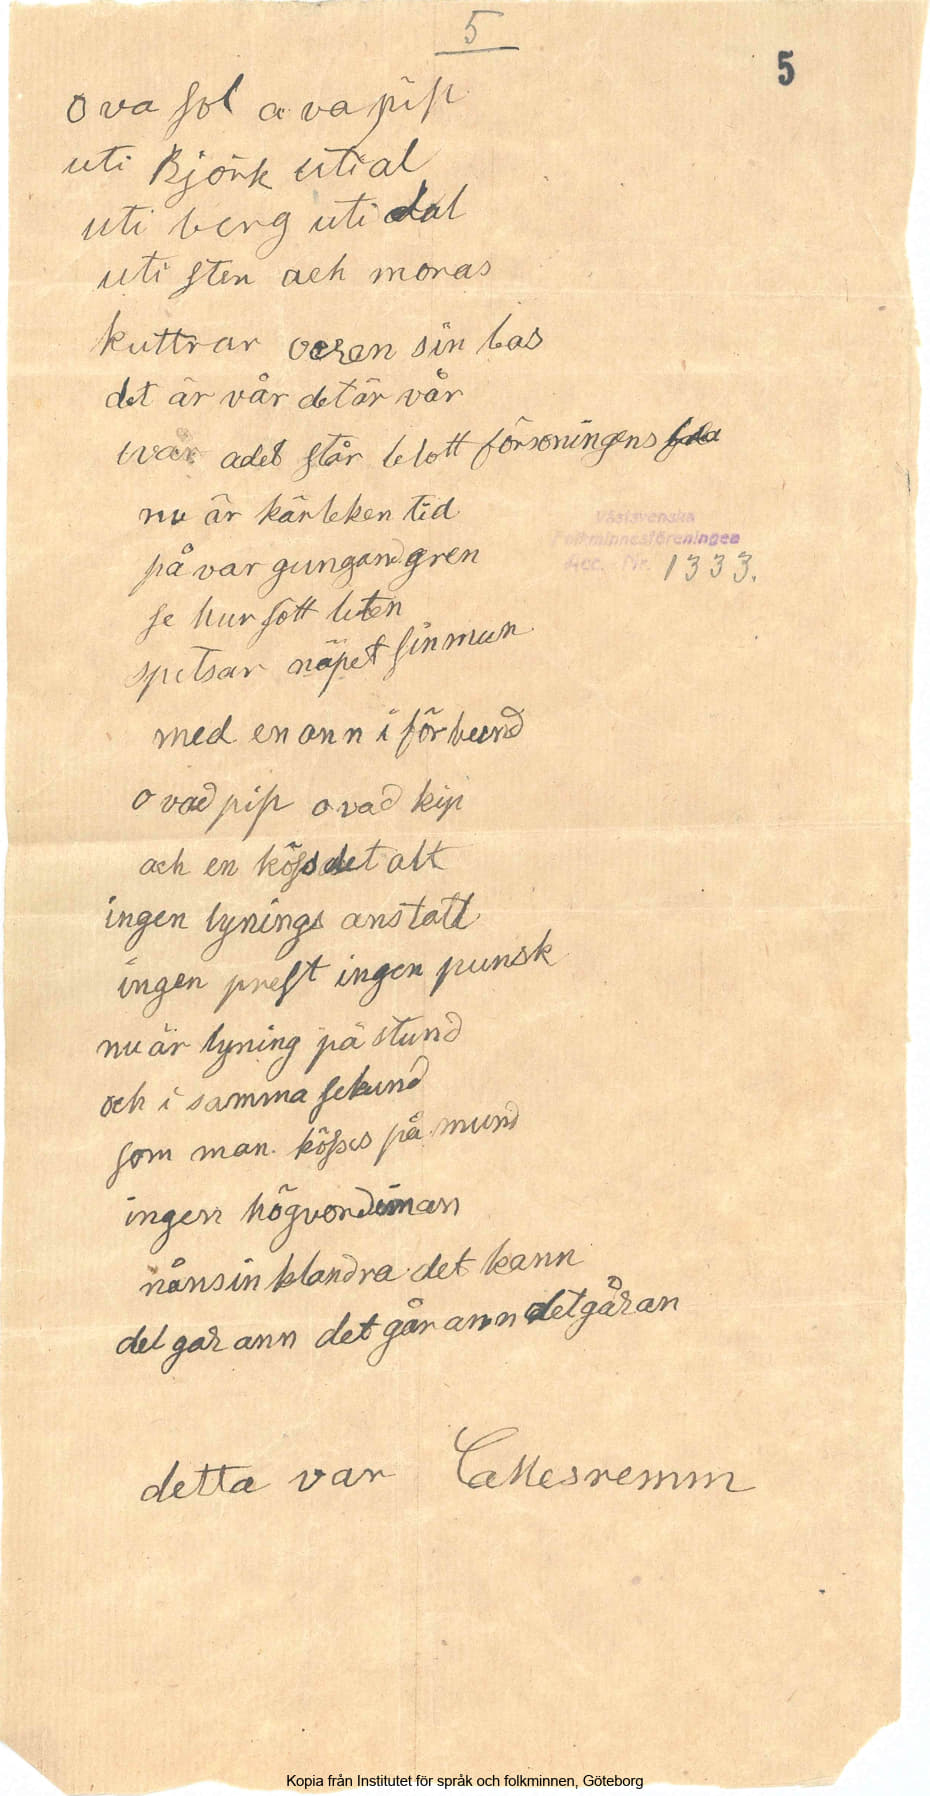 5
5
o va sol o va pip
uti Björk uti al
uti berg uti dal
uti sten och moras
kuttrar oren sin bas
det är vår det är vår
var adet står blott försoningens
nu är kärleken tid
på var gungand gren
se hur sött liten
spetsar näpet sin mun
med en ann i förbund
o vad pip o vad kip
och en köss det alt
ingen lynings anstalt
ingen prest ingen punsk
nu är lyning på stund
och i samma sekund
som man kösses på mund
ingen högvordiman
nånsin klandra det kann
det gar ann det går ann det går an
Västsvenska
Folkminnesföreningen
Acc. Nr. 1333.
detta var Callesremm
Kopia från Institutet för språk och folkminnen, Göteborg